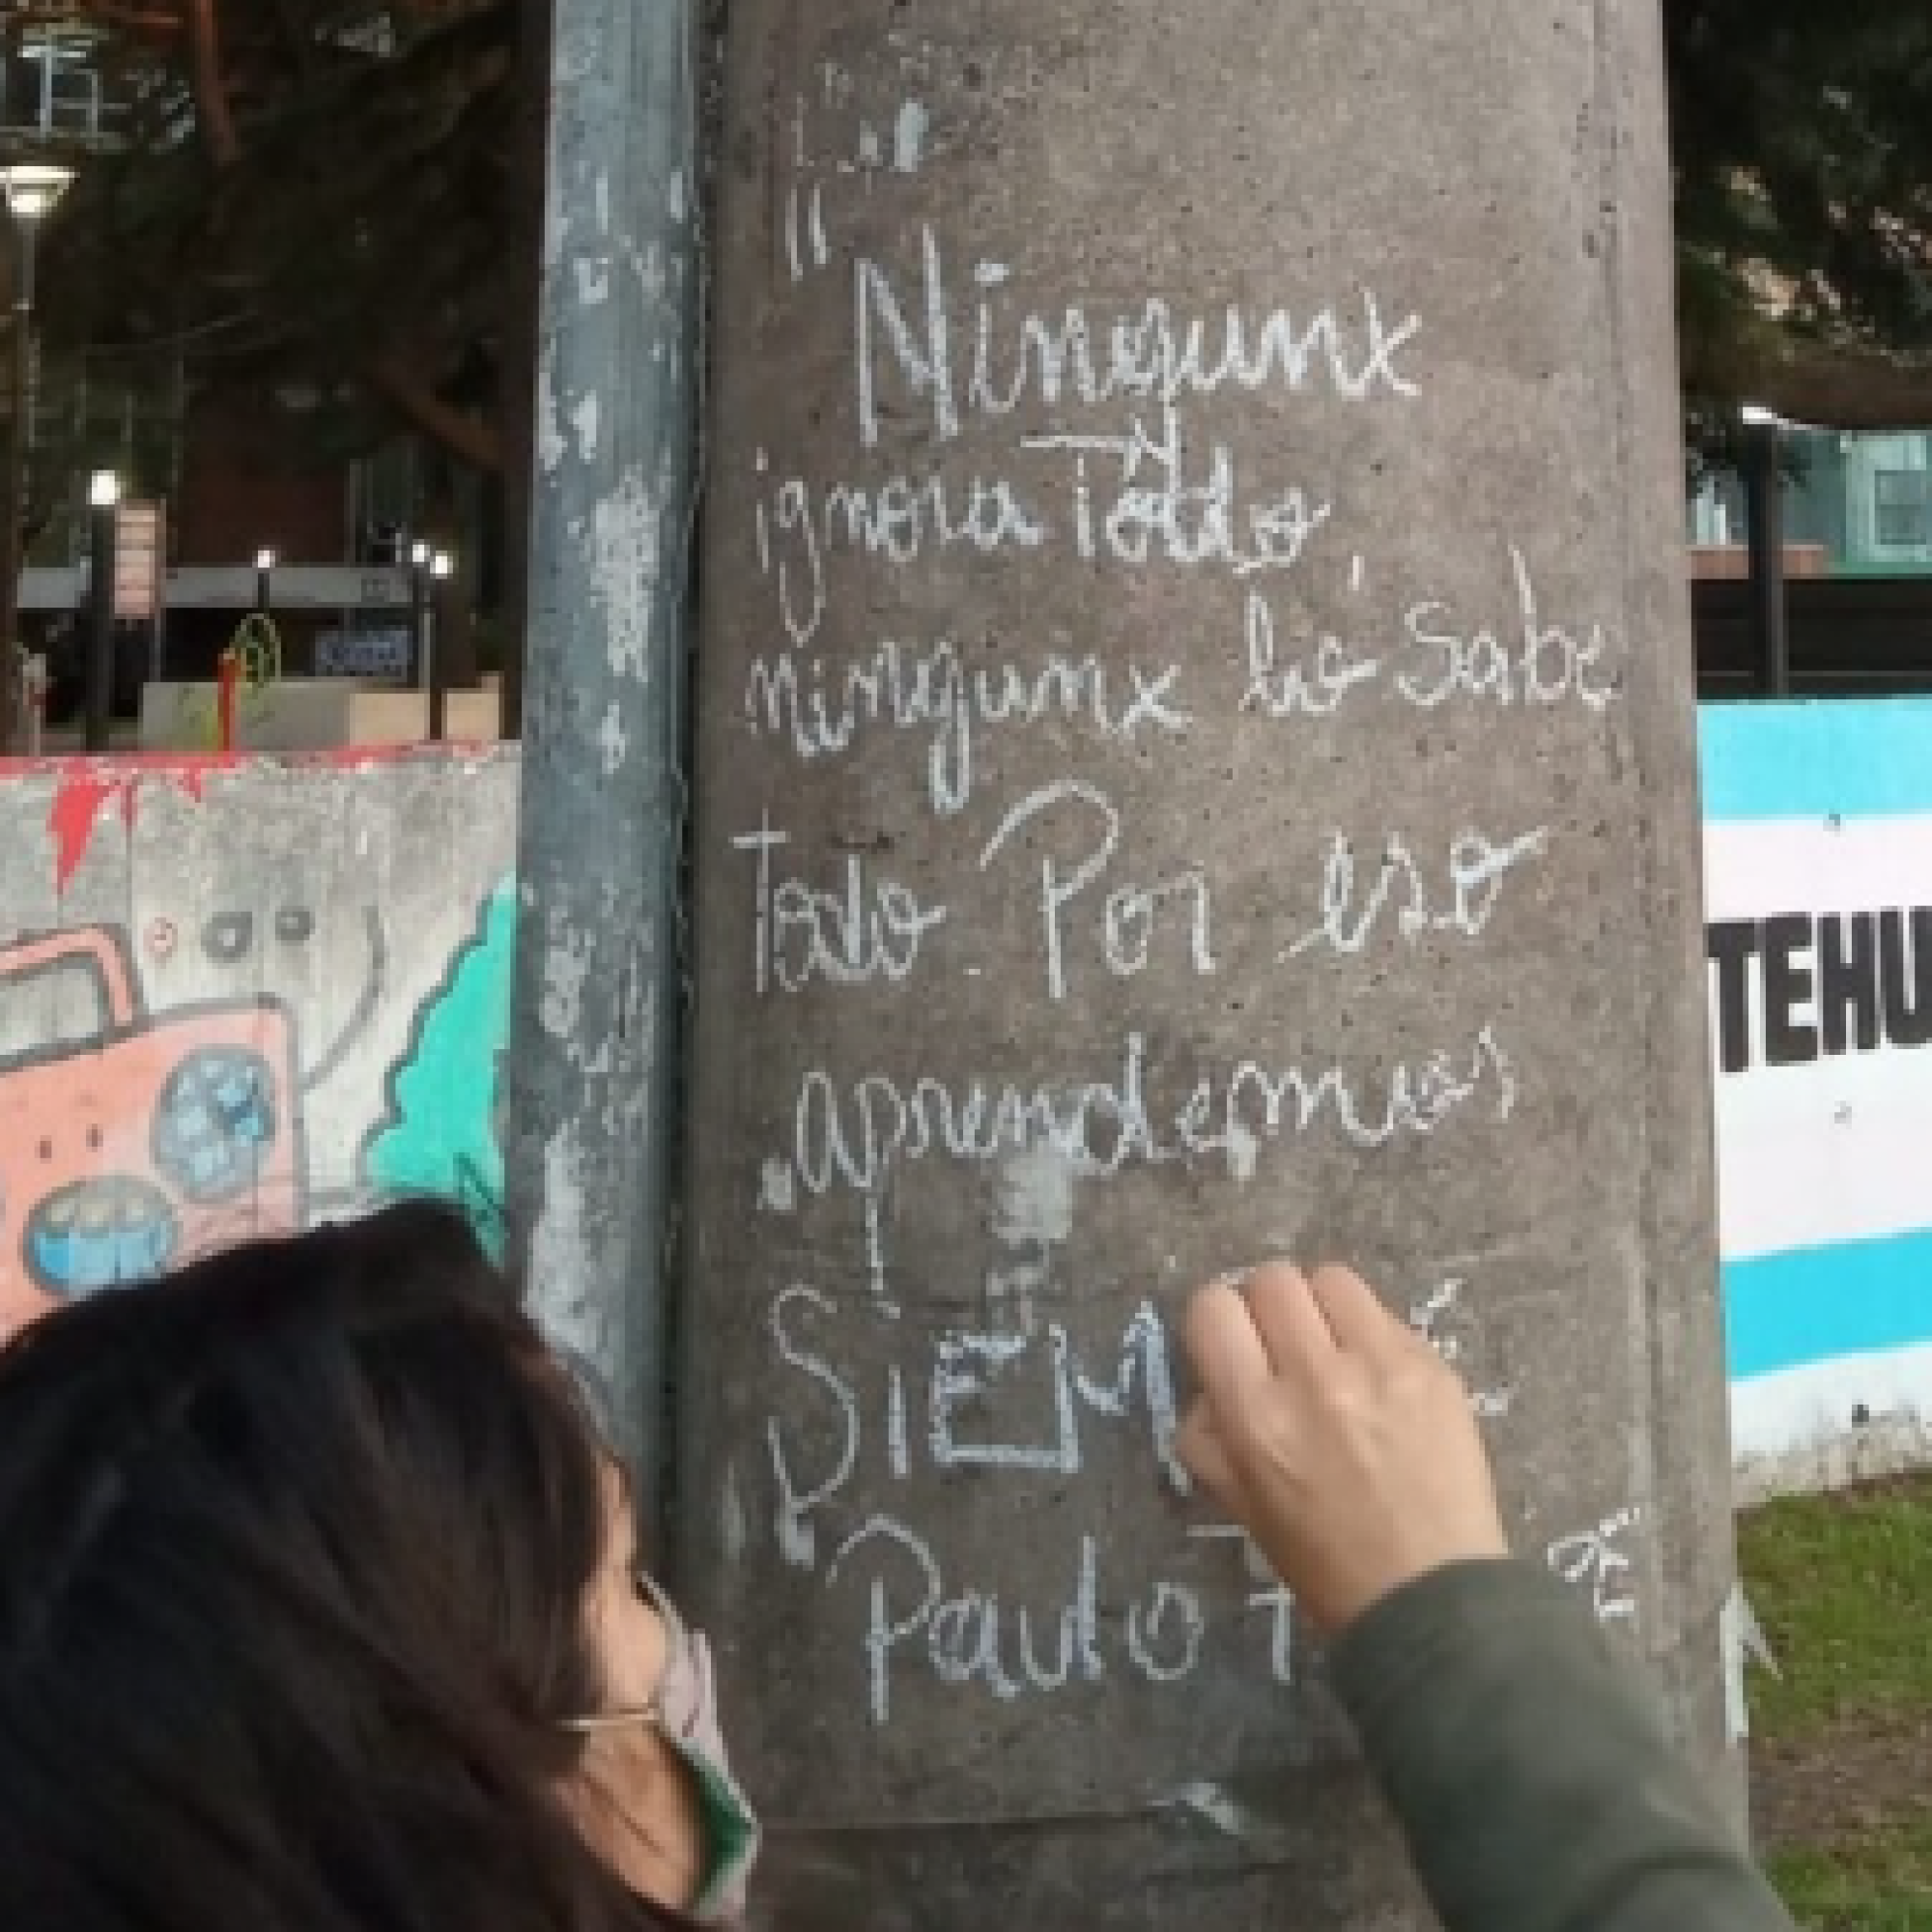 "Ningunx
ignora Todo,
ningunx lo Sabe
Todo. Por eso
aprendemos
SiEM
Paulo F
TEHU